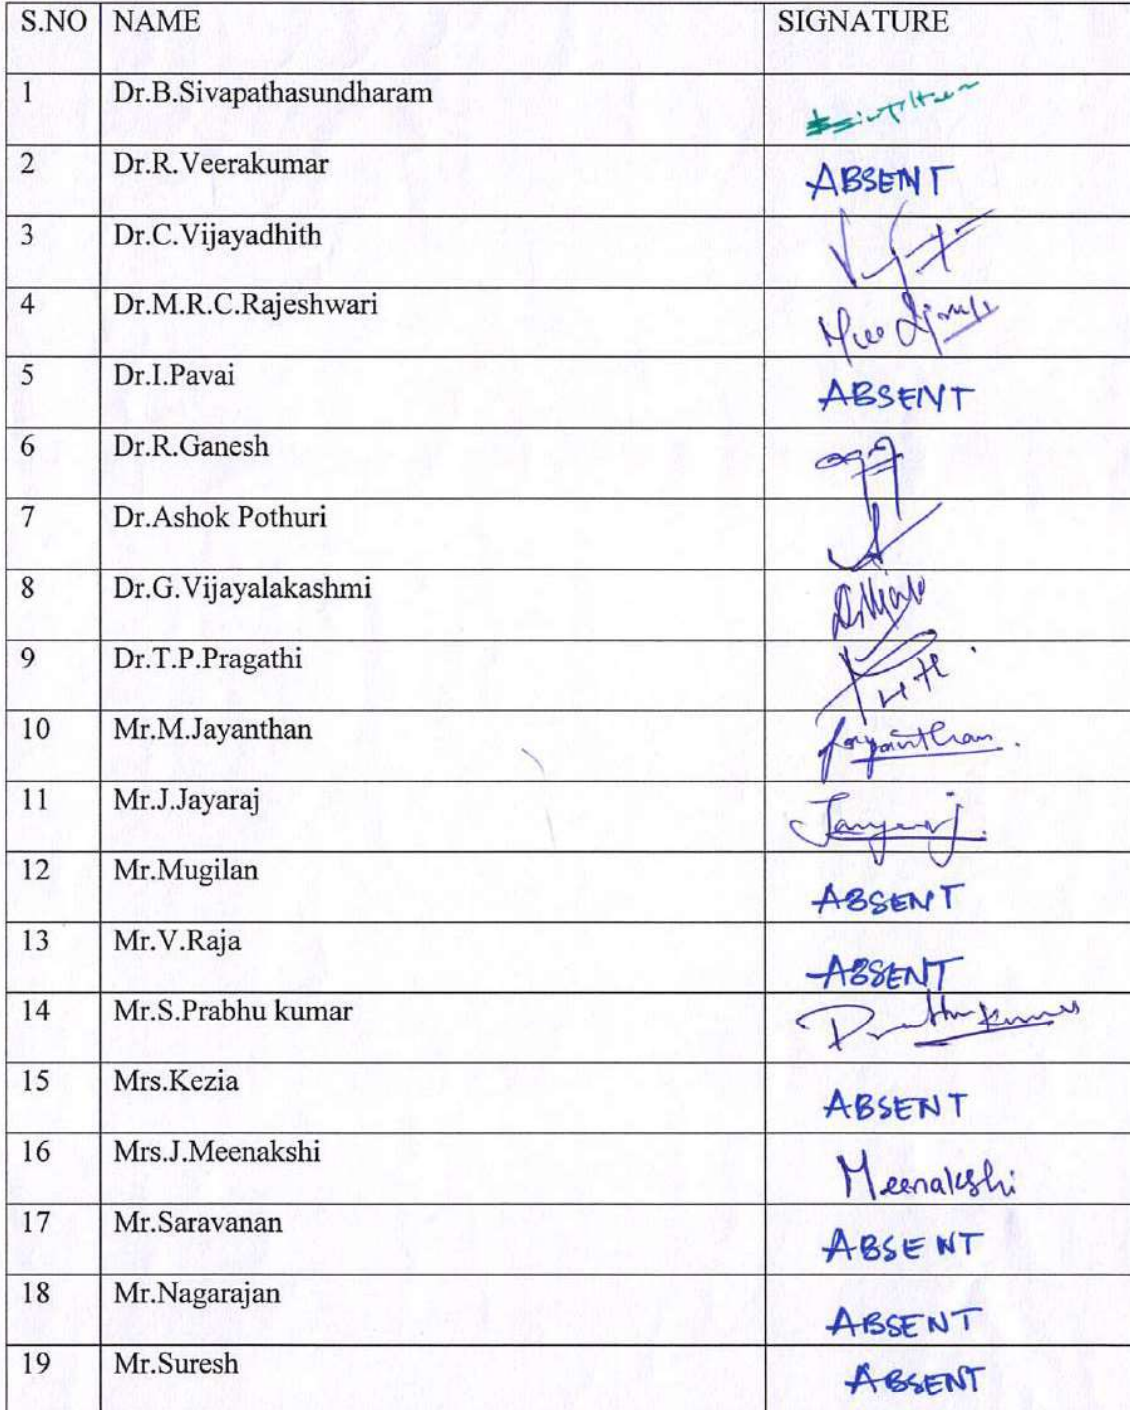 S.NO NAME SIGNATURE
1 Dr.B.Sivapathasundharam
2 Dr.R.Veerakumar ABSENT
3 Dr.C.Vijayadhith
4 Dr.M.R.C.Rajeshwari
5 Dr.I.Pavai ABSENT
6 Dr.R.Ganesh
7 Dr.Ashok Pothuri
8 Dr.G.Vijayalakashmi
9 Dr.T.P.Pragathi
10 Mr.M.Jayanthan Jayanthan.
11 Mr.J.Jayaraj Jayaraj.
12 Mr.Mugilan ABSENT
13 Mr.V.Raja ABSENT
14 Mr.S.Prabhu kumar Prabhu kumar
15 Mrs.Kezia ABSENT
16 Mrs.J.Meenakshi Meenakshi
17 Mr.Saravanan ABSENT
18 Mr.Nagarajan ABSENT
19 Mr.Suresh ABSENT